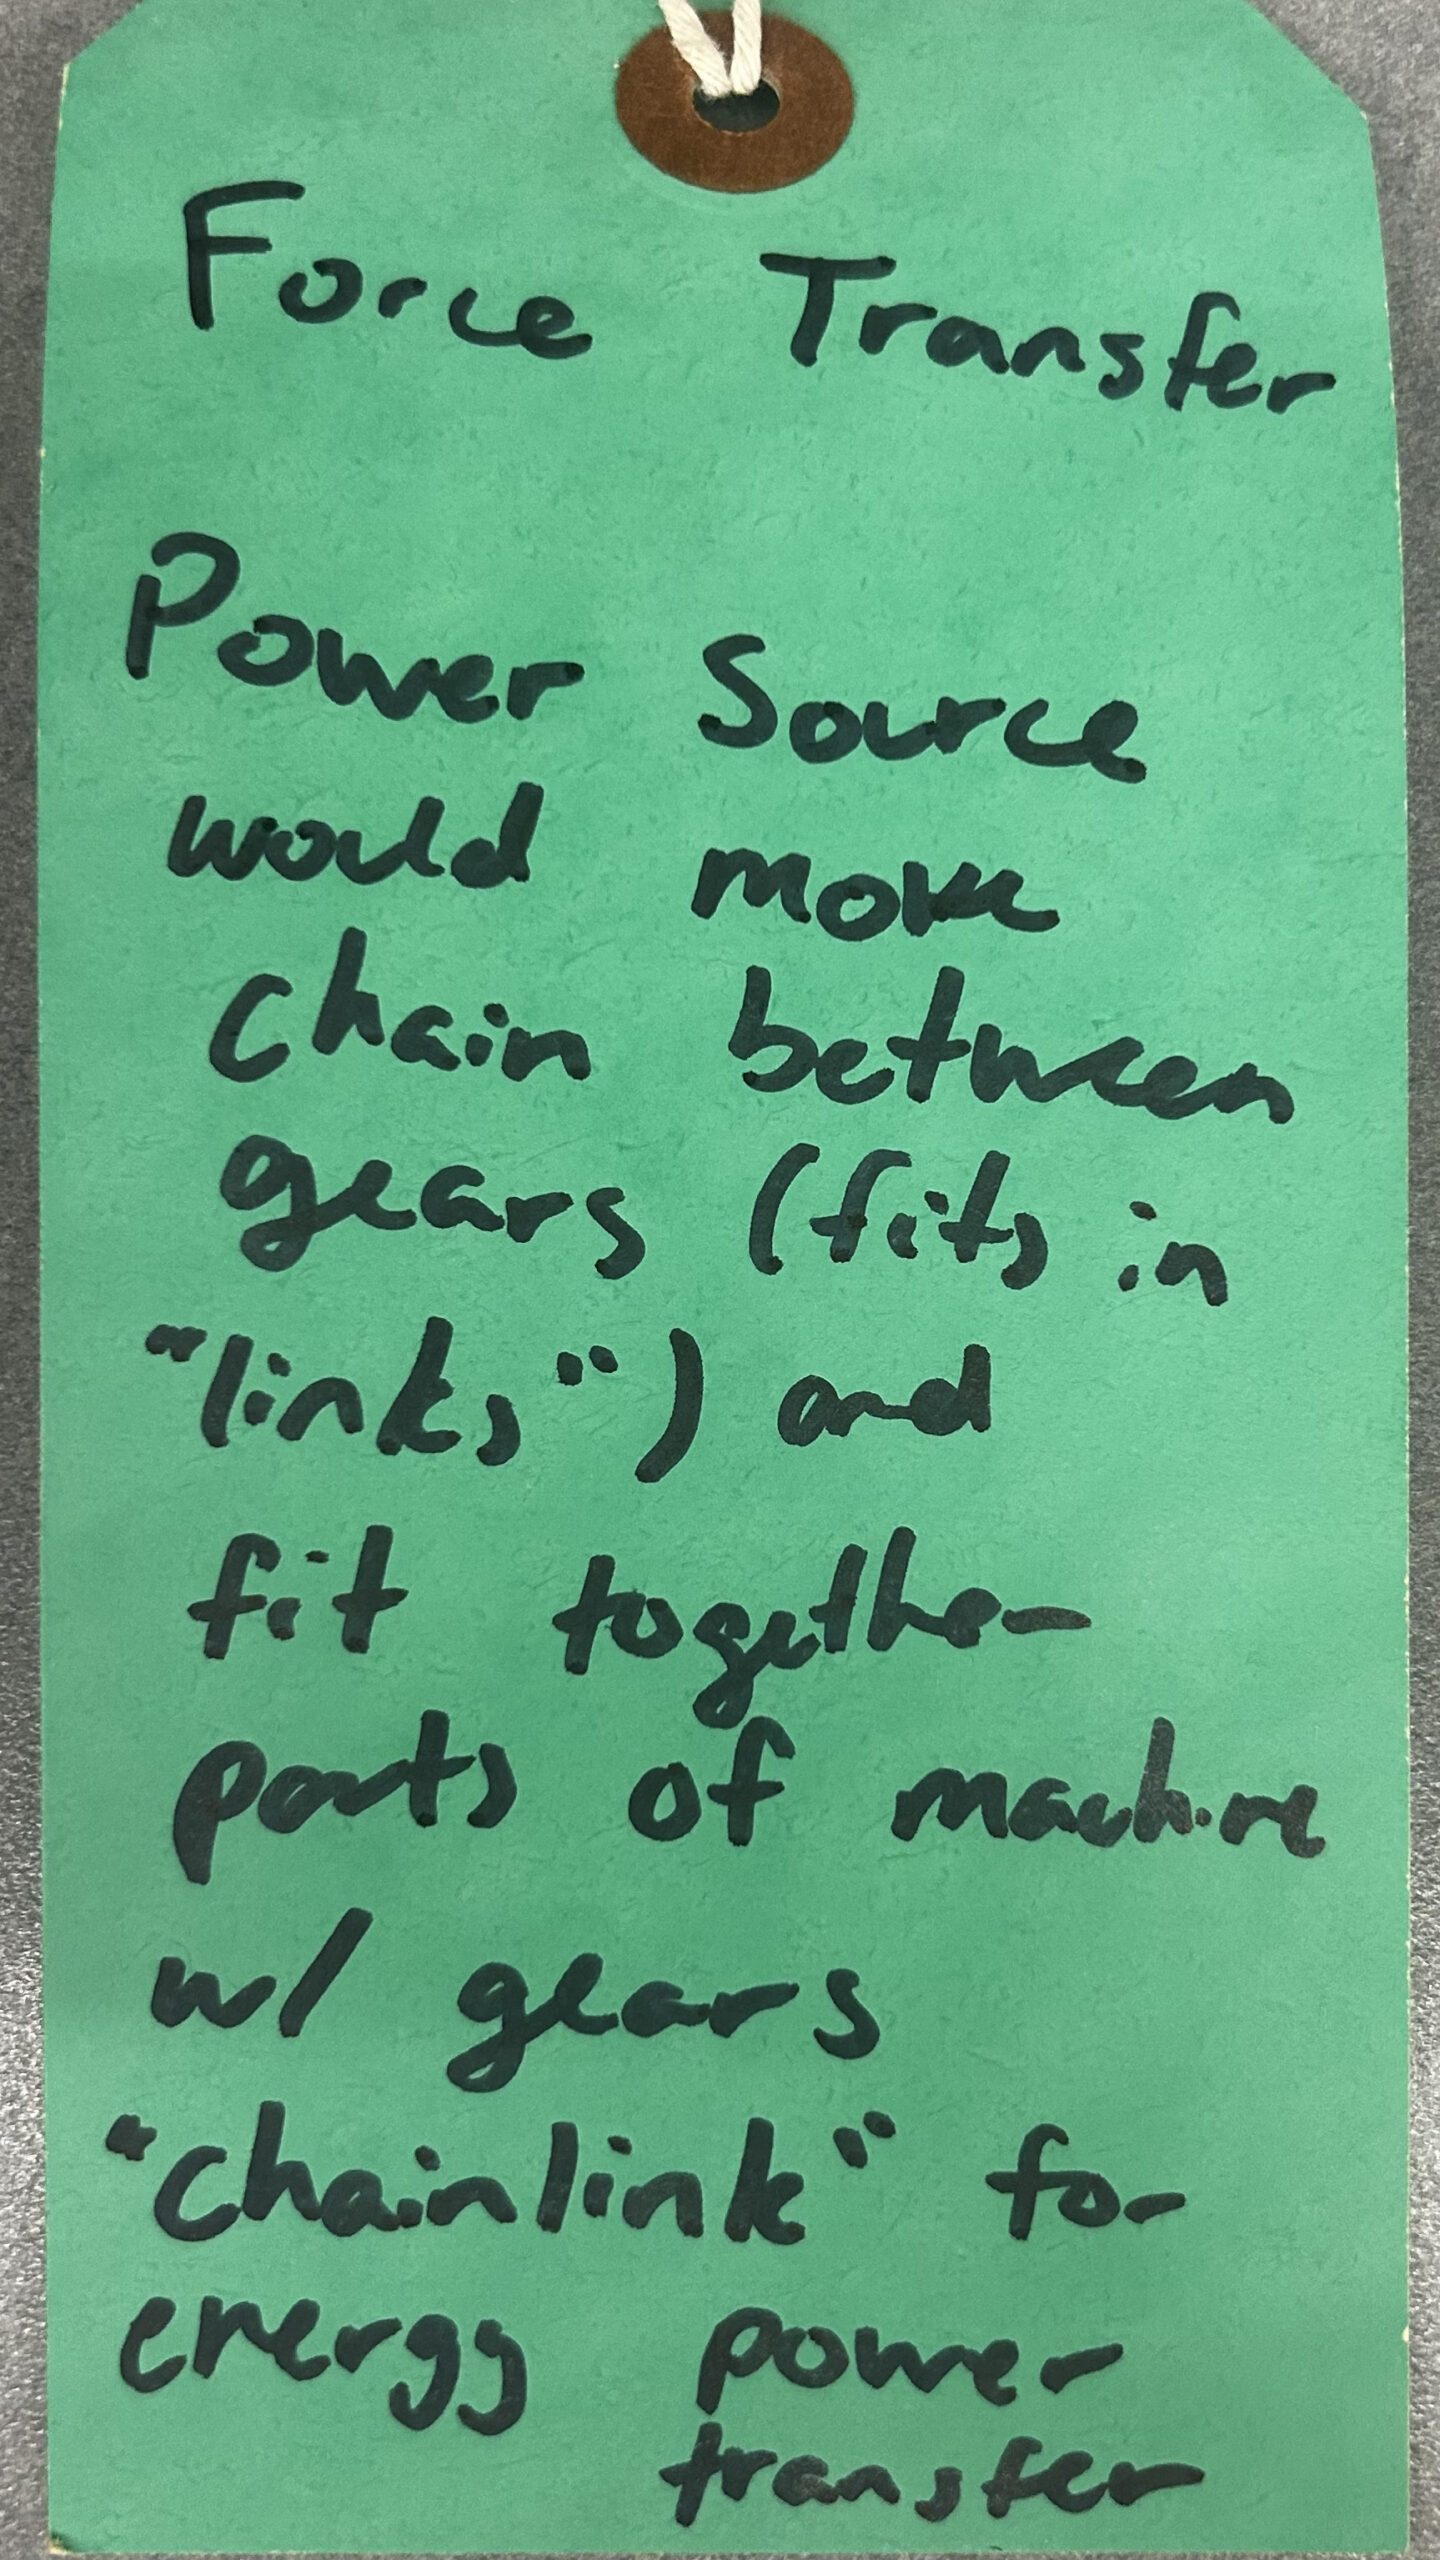 Force Transfer
Power Source
would move
chain between
gears (fits in
"links") and
fit together
parts of machine
w/ gears
"chainlink" for
energy power
transfer